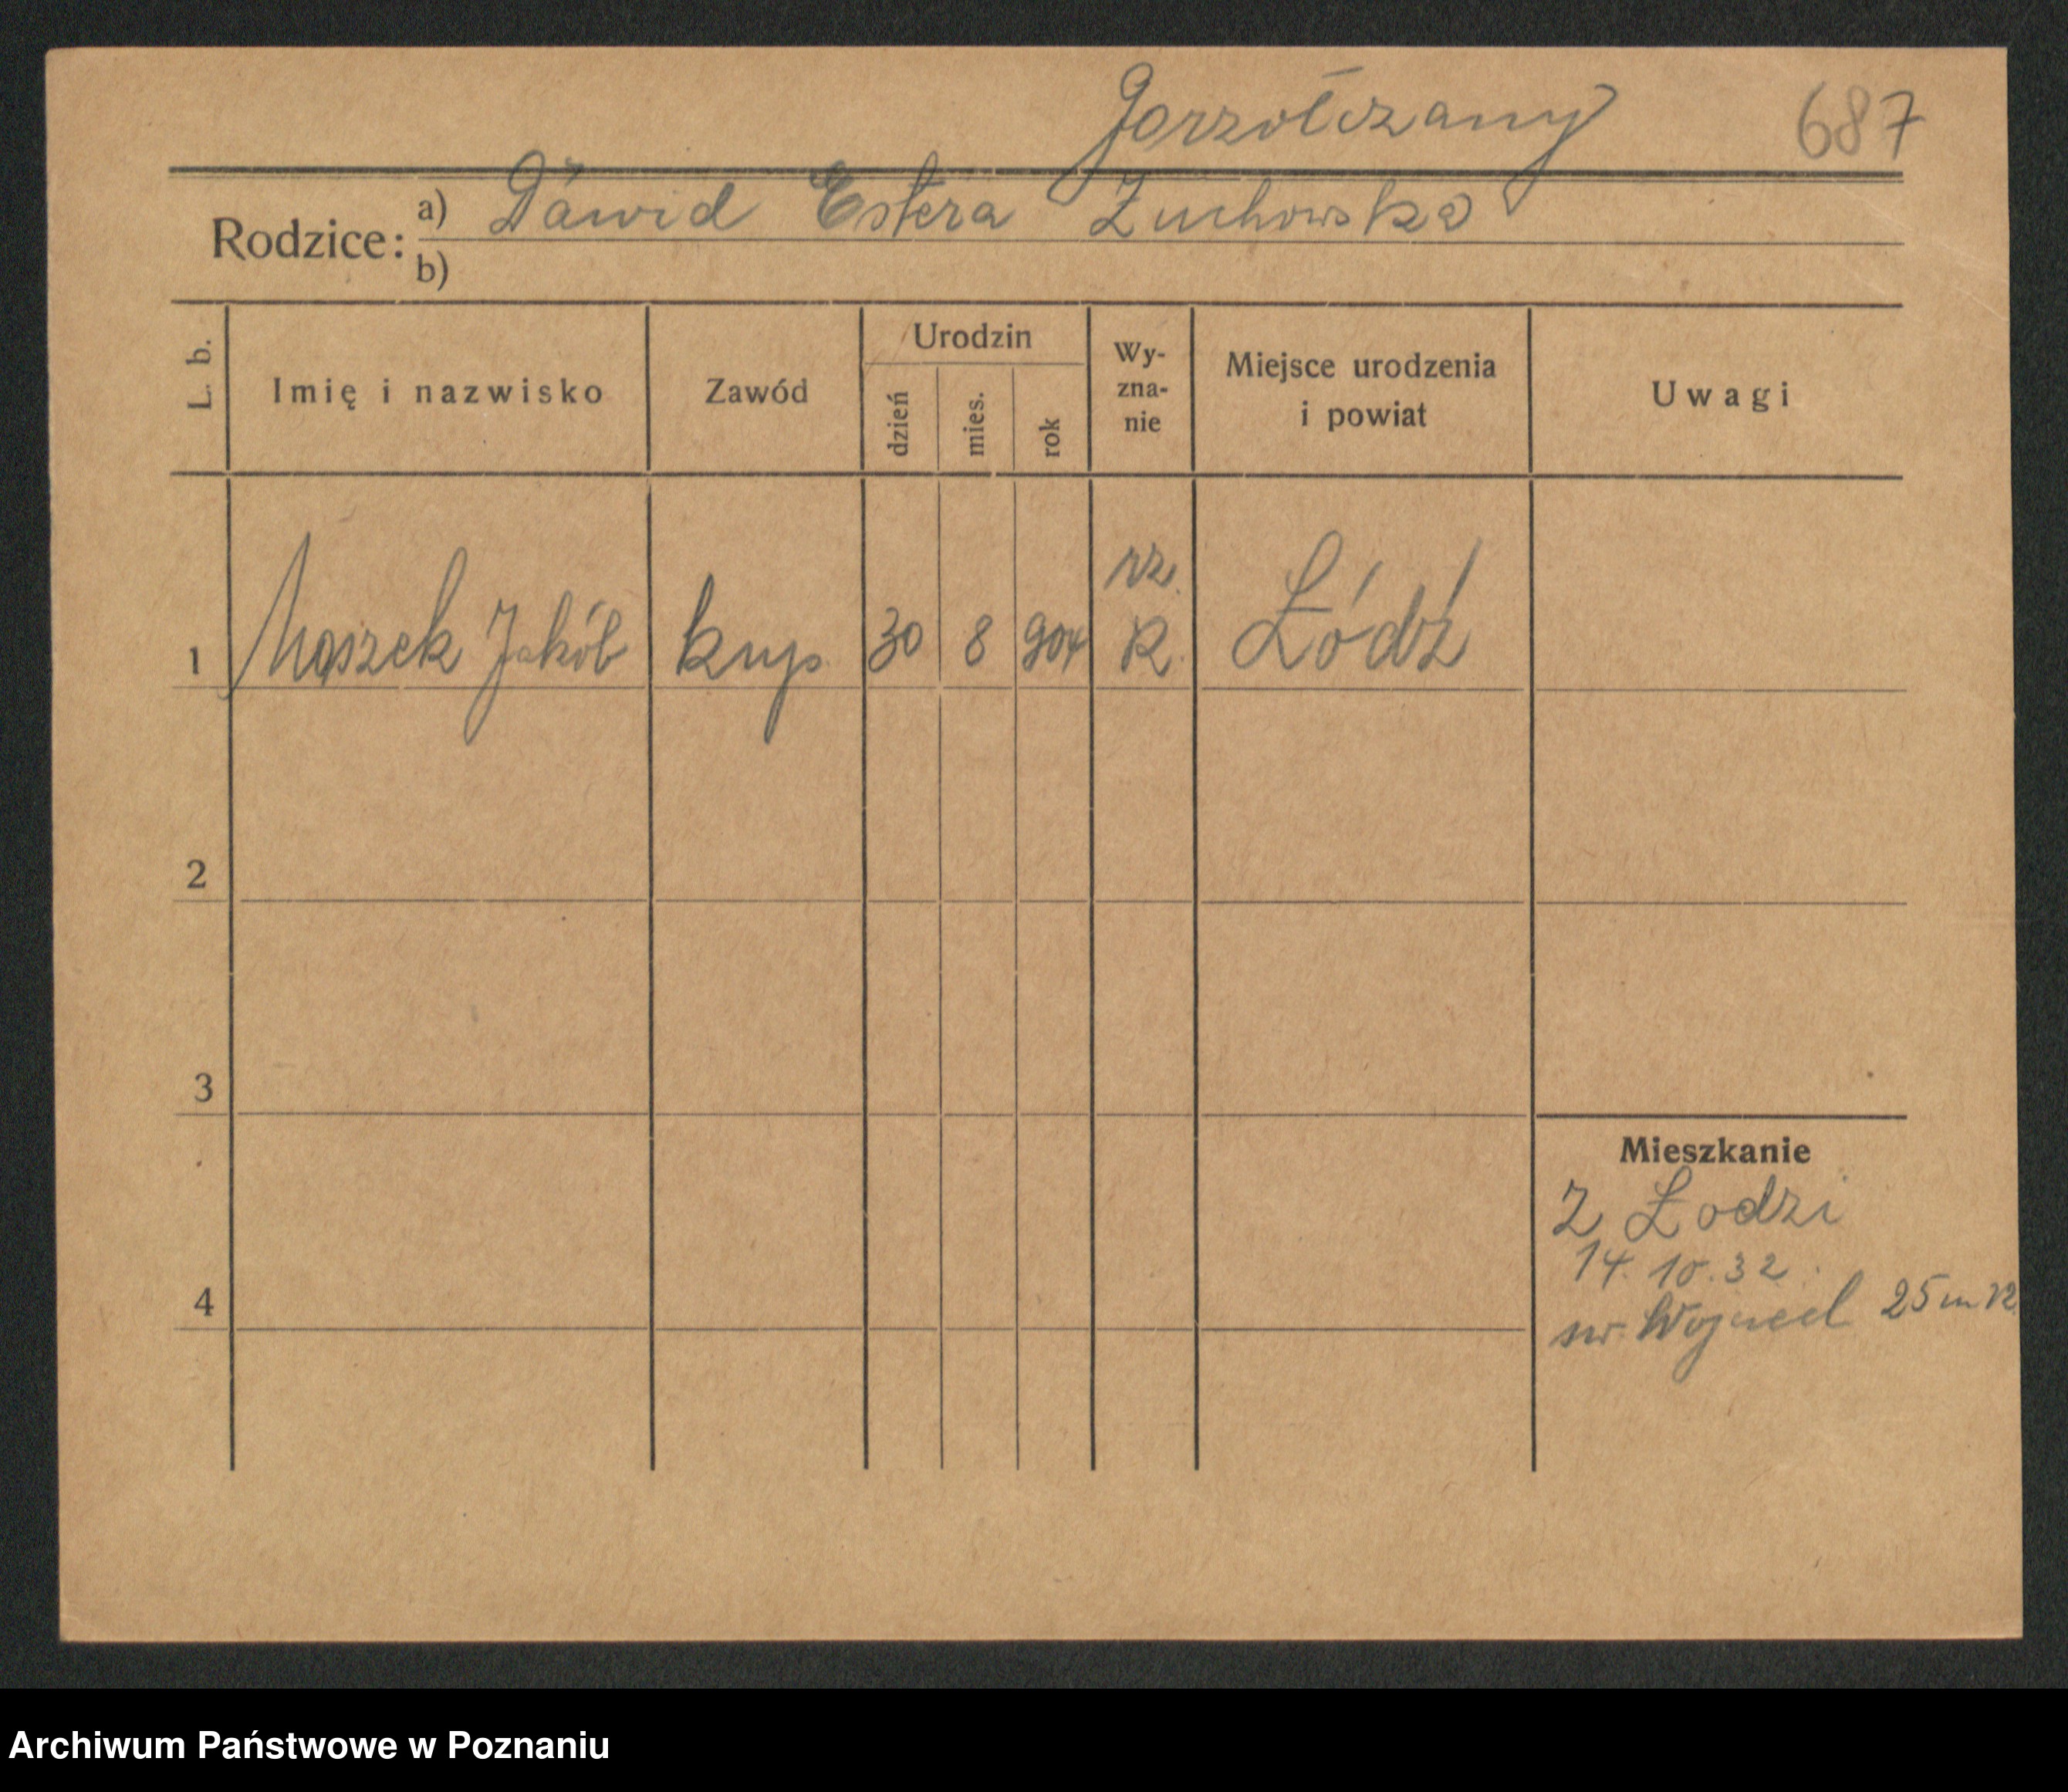 Gorzołczany 687
Rodzice: a) Dawid Estera Żuchowska
b)
L. b. Imię i nazwisko Zawód Urodzin dzień mies. rok Wy-zna-nie Miejsce urodzenia i powiat Uwagi
rz.
1 Moszek Jakób kup. 30 8 904 K. Łódź
2
3
Mieszkanie
Z Łodzi
14. 10. 32.
4
św. Wojciech 25 m
Archiwum Państwowe w Poznaniu